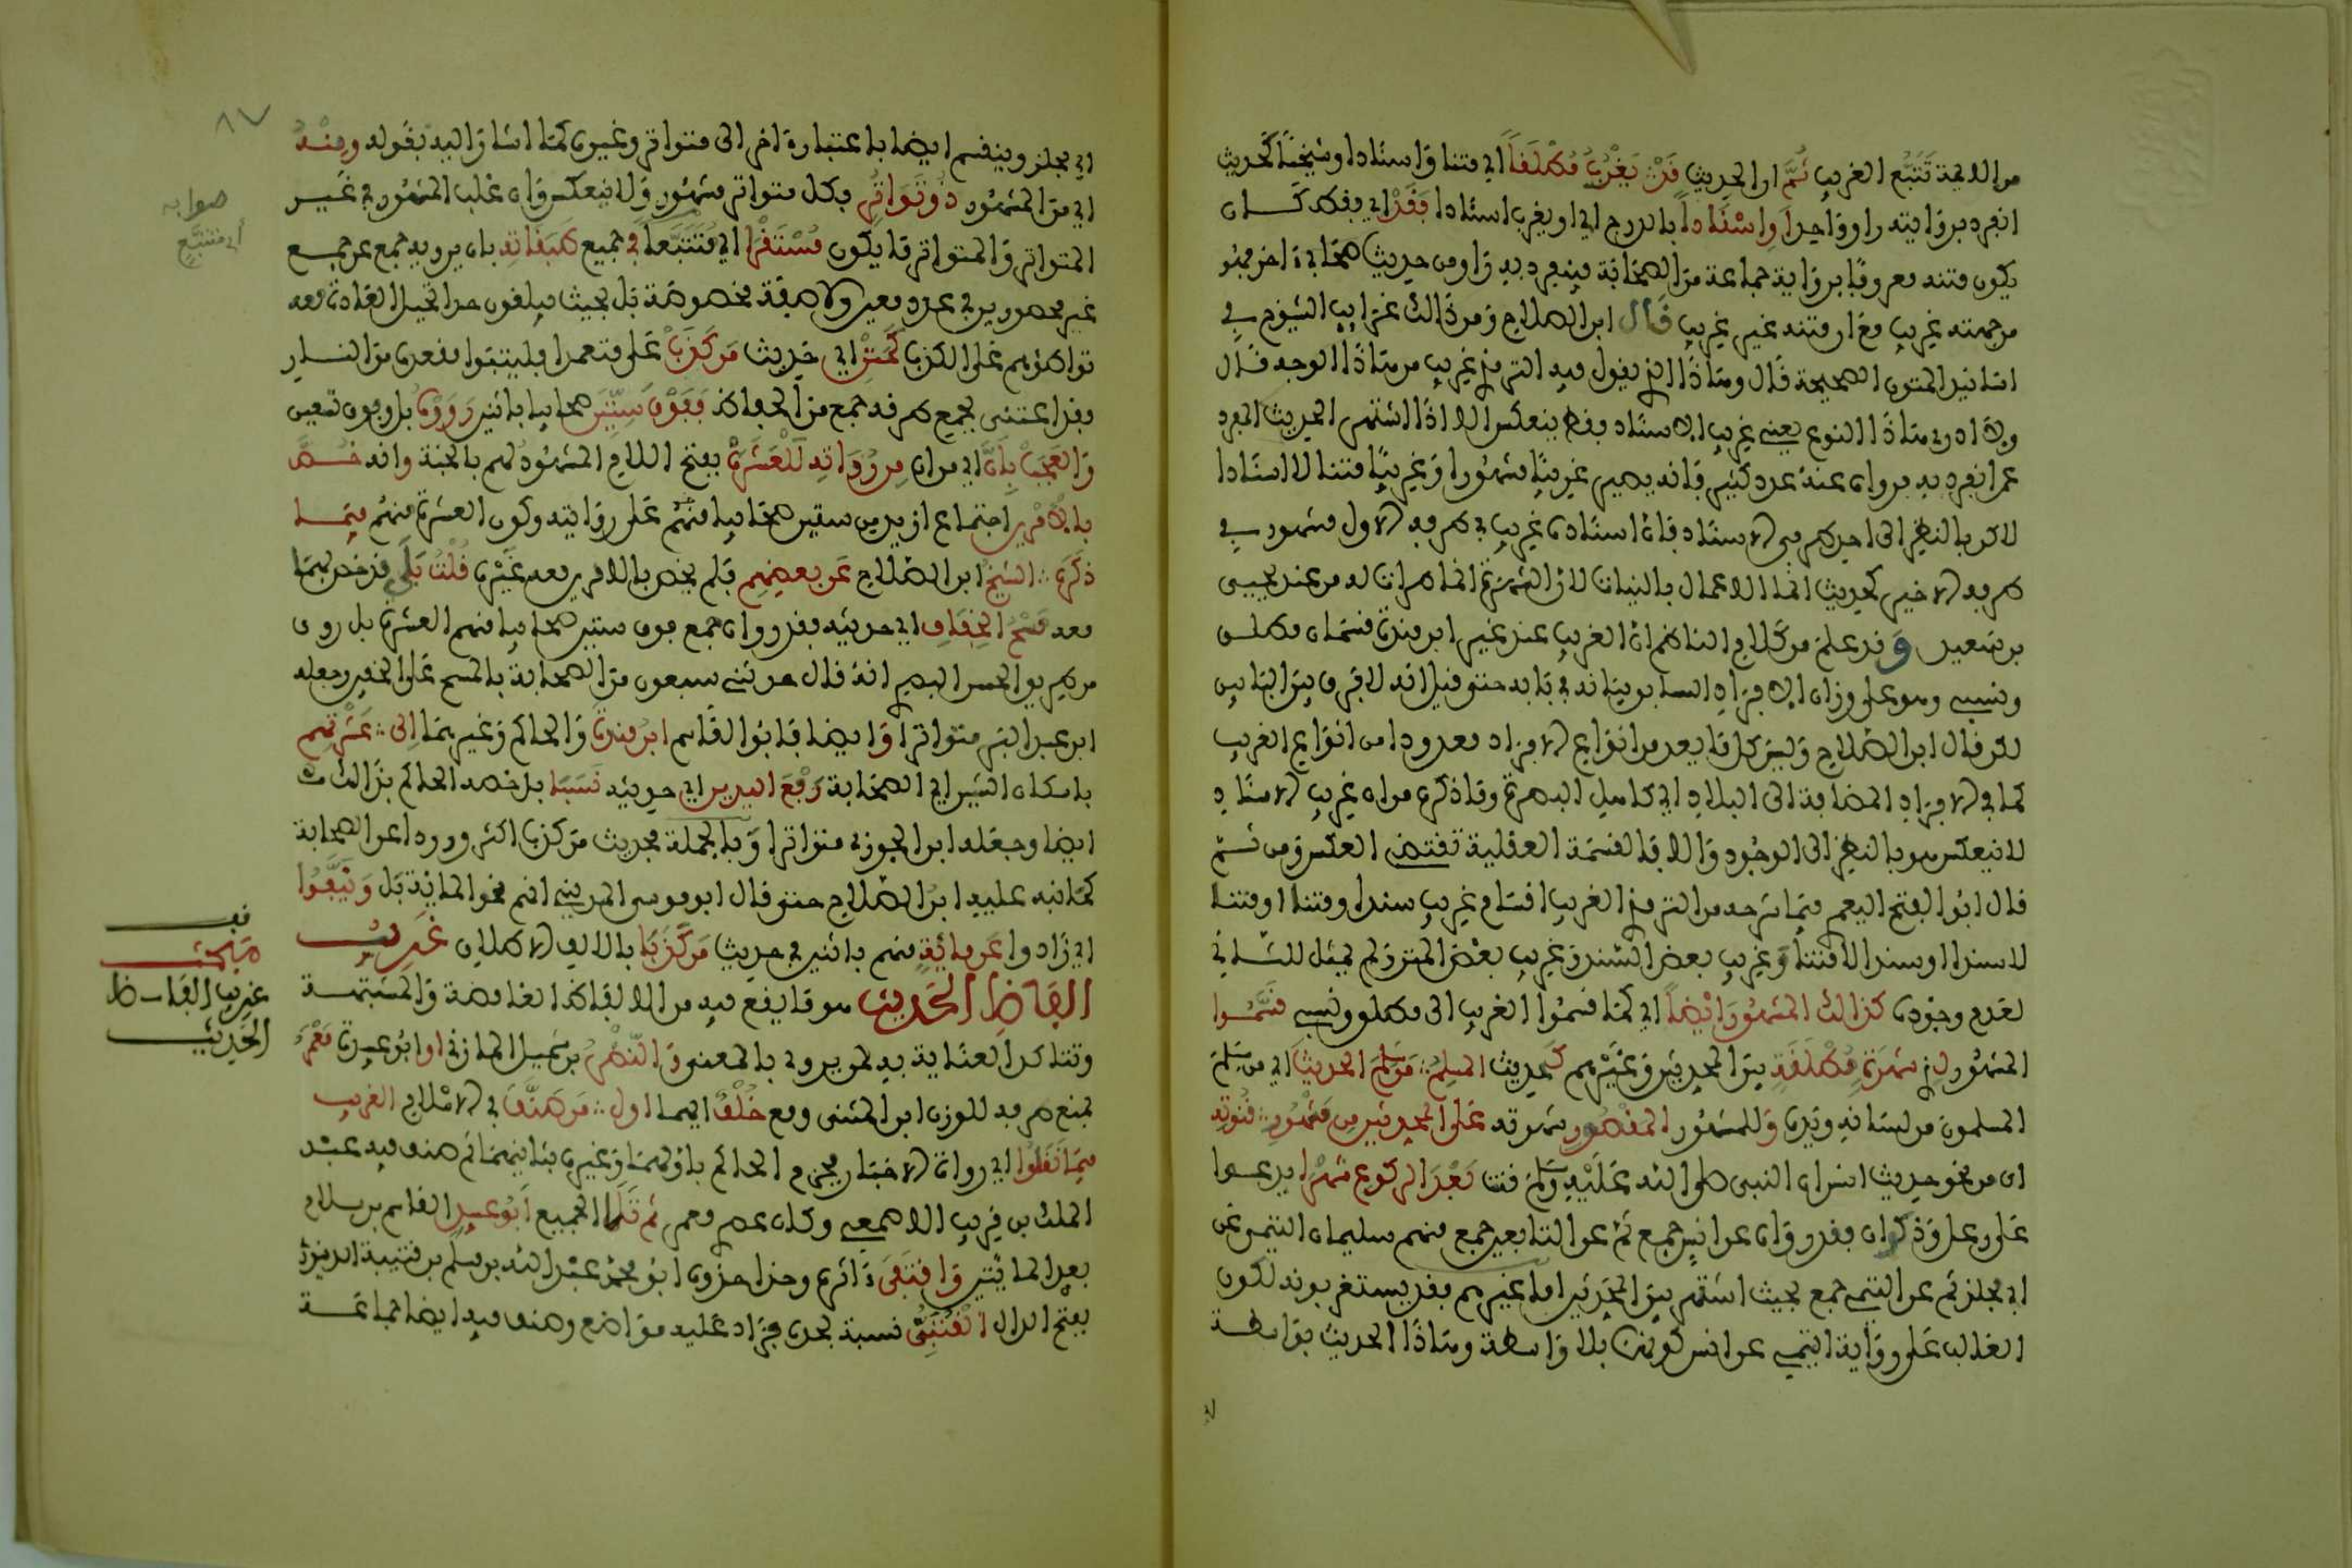 من الائمة تَتَبُّع الغريب ثُمَّ ان الحديث قَدْ يَغْرُبُ مُطْلَقاً اي متنا وَاسنادا وشيخنا كحديث
انفرد بروَايته راو وَاحد اَواِسْنَاداً بالدرج اي او يغرب اسنادا فَقَدْ اي فقط كـــان
يكون متنه معروفا بروَاية جماعة من الصحابة فينفرد به رَاو من حديث صحابي ءاخر فهو
من جهته غريب مع ان متنه غير غريب قَال ابن الصلاح وَمن ذَالك غرايب الشيوخ في
اسانيد المتون الصحيحة قَال وهَاذَا الذي يقول فيه الترمذي غريب من هَاذَا الوجه قَال
ولا ارى هَاذَا النوع يعني غريب الاسناد فقط ينعكس الا اذَا اشتهر الحديث الفرد
عمن انفرد به فرواه عنه عدد كثير فانه يصير غريبًا مشهورا وَغريبًا متنا لا اسنادا
لاكن بالنظر الى احد طرفي الاسناد فان اسناده غريب في طرفه الاول مشهور في
طرفه الاخير كحديث انما الاعمال بالنيات لان الشهرة انما طرات له من عند يحيى
بن سعيد وَقد علم من كلام الناظم ان الغريب عند غير ابن منده قسمان مطلـق
ونسبي وهو على وزان الافراد السابق بيَانه في بَابه حتى قيل انه لا فرق بين البَابين
لكن قال ابن الصلاح وَليس كل مَا يعد من انوَاع الافراد معدودا من انوَاع الغريب
كما في الافراد المضافة الى البلاد اي كاهل البصرة وما ذكره من ان غريب الاسناد
لا ينعكس هو بالنظر الى الوجُود وَالا فالقسمة العقلية تقتضي العكس وَمن ثـمّ
قال ابُو الفتح اليعمري فيمَا شرحه من الترمذي الغريب اقسام غريب سندا ومتنا او متنا
لا سندا او سندا لا متنا وَغريب بعض السند وَغريب بعض المتن وَلم يمثل للثـاني
لعدم وجُوده كذالك المشهُور اَيْضاً اي كمَا قسمُوا الغريب الى مطلق ونسبي قَسَّمُـوا
المشهُور لِذِي شهرَةٍ مُطْلَقَةِ بين المحدثين وَغَيْرهم كَحديث المسلمُ مَن سَلِمَ الحديثَ اي من سلم
المسلمون من لسَانه ويَده وَللمشهُور المقصُور شهرته على المحدثين مِن مَشْهُورِ قُنُوتِهِ
اي من نحو حديث انس ان النبي صلى الله عَلَيْهِ وَسلم قنت بَعْدَ الركوع شَهْرًا يدعـوا
على رعل وَذكوان فقد روَاه عن انس جمع ثم عن التابعين جمع منهم سليمان التيمي عن
ابي مجلز ثم عن التيمي جمع بحيث اشتهر بين المحدثين اما غيرهم فقد يستغربونه لكون
الغالب على روَاية التيمي عن انس كونها بلا وَاسطة وهَاذَا الحديث بوَاسطـة
٨٧
ابي مجلز وينقسم ايضا باعتبار ءاخر الى متواتر وغيره كمَا اشار اليه بقوله ومِنْـهُ
اي من المشهُور ذُو تَوَاتُرٍ فكل متواتر مشهُور وَلا ينعكس وَان غلب المشهُور في غيـر
المتواتر وَالمتواتر مَا يكون مُسْتَقْرَا اي مُتَتَبَّعا في جميع طَبَقَاتِهِ بان يرويه جمع عن جمـع
غير محصورين في عدد معين ولا صفة مخصوصَة بَل بحيث يبلغون حدا تحيل العَادة معه
تواطؤهم على الكذب كَمَتْنِ اي حَديث مَن كَذَبَ عَلى متعمدا فليتبوا مقعده من النـار
فقد اعتنى بجمع طرقه جمع من الحفاظ فَفَوْقَ سِتِّينَ صحابيا باثنين رَوَوْهُ بل وفوق سبعين
وَالعَجَبُ بِأَنَّ اي من ان مِن رُوَاتِهِ لَلْعَشَرَهْ بفتح اللام المشهُود لهم بالجنة وانه خُـصَّ
بالامْرين اجتماع ازيد من ستين صحَابيا منهم على روَايته وكون العشرة منهم فيمـا
ذكرَه الشيخُ ابن الصَّلاح عَن بعضهم قلم يخص بالامرين معه غَيْره قُلْتُ بَلَى قد خص بهمَا
معه مَسْحُ الخِفَافِ اي حديثه فقد رواه جمع فوق ستين صحَابيا منهم العشرة بل روى
من طريق الحسن البصري انهُ قال حدثني سبعون من الصحَابة بالمسح على الخفين وجعله
ابن عبد البر متواترا وَايضا فابُو القَاسم ابنُ مندة وَالحاكم وَغيرهمَا اِلى عَشْرَتِهِم
باسكان الشين اي الصحَابة رَفْعَ اليدين اي حديثه نَسَبَا بل خصه الحاكم بذَالـك
ايضا وجعَله ابن الجوزي متواترا وَبالجملة فحديث مَن كذب اكثر ورودا عن الصحابة
كمَا نبه عليه ابنُ الصَّلاح حتى قال ابو موسى المديني انهم نحو المائة بَل وَنَيَّفُوا
اي زَادوا عَن مِائَةٍ منهم باثنين في حديث مَن كَذَبَا بالالف الاطلاق غَرِيبُ
اَلفَاظِ الحَدِيثِ هو مَا يقع فيه من الالفَاظ الغامضة وَالمشتبهـة
وتتاكد العنَاية به لمن يروى بالمعنى وَالنَّضْرُ بن شميل المازني او ابُو عبيدة مَعْمَرُ
بمنع صرفه للوزن ابن المثنى وقع خُلْفٌ ايهما اول مَن صَنَّفَ في الاسْلام الغريب
فِيمَا نَقَلُوا اي رواة الاخبار فجزم الحاكم باولهمَا وَغيره بثَانيهمَا ثم صنف فيه عبْـد
الملك بن قريب الاصمعي وكان عصري معمر ثم تَلا الجميع اَبُو عبيدِ القاسم بن سلام
بعد المائتين وَاقْتَفَى اثره وحذا حذوه ابُو محمد عبْد الله بن مسلم بن قتيبة الدينوري
بفتح الدال القُتَيْبِيُّ نسبة لجده فزَاد عليه موَاضع وصنف فيه ايضا جماعـة
صوابه
اي متتبَّع
قف
مبحث
غريب الفَاـظ
الحَدِيث